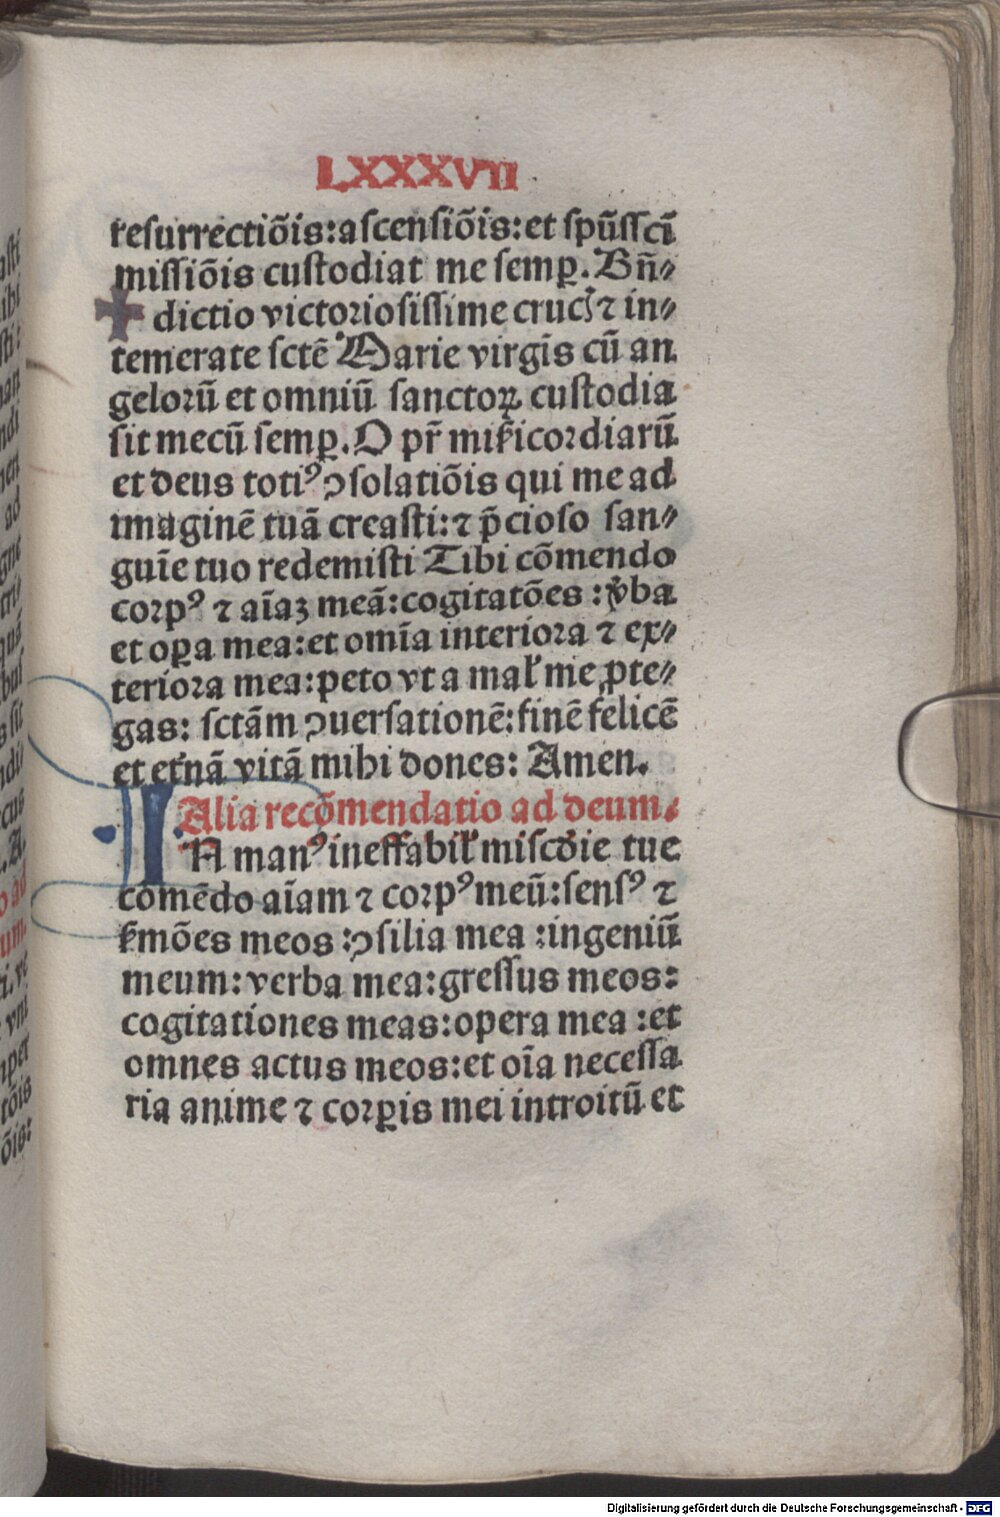 LXXXVII
resurrectiõis:ascensiõis:et spũssci̅
missiõis custodiat me semꝑ. Bñ⸗
✚ dictio victoriosissime cruc̉ ⁊ in⸗
temerate sctẽ Marie virgĩs cũ an
gelorũ et omniũ sanctoꝝ custodia
sit mecũ semꝑ. O pr̃ mi k̃icordiarũ
et deus totiꝰ ꝯsolatiõis qui me ad
imaginẽ tuã creasti: ⁊ p̃cioso san⸗
guĩe tuo redemisti Tibi cõmendo
corpꝰ ⁊ aĩaꝫ meã: cogitatões : v̓ba
et oꝑa mea: et omĩa interiora ⁊ ex⸗
teriora mea: peto vt a mal̓ me ꝓte⸗
gas: sctãm ꝯuersationẽ: finẽ felicẽ
et et̓nã vitã mihi dones: Amen.
Alia recõmendatio ad deum.
IN manꝰ ineffabil̓ misc̓die tue
cõmẽdo aĩam ⁊ corpꝰ meũ: sensꝰ ⁊
s̓mões meos : ꝯsilia mea : ingeniũ
meum: verba mea: gressus meos:
cogitationes meas: opera mea : et
omnes actus meos: et oĩa necessa
ria anime ⁊ corꝑis mei introitũ et
Digitalisierung gefördert durch die Deutsche Forschungsgemeinschaft - DFG